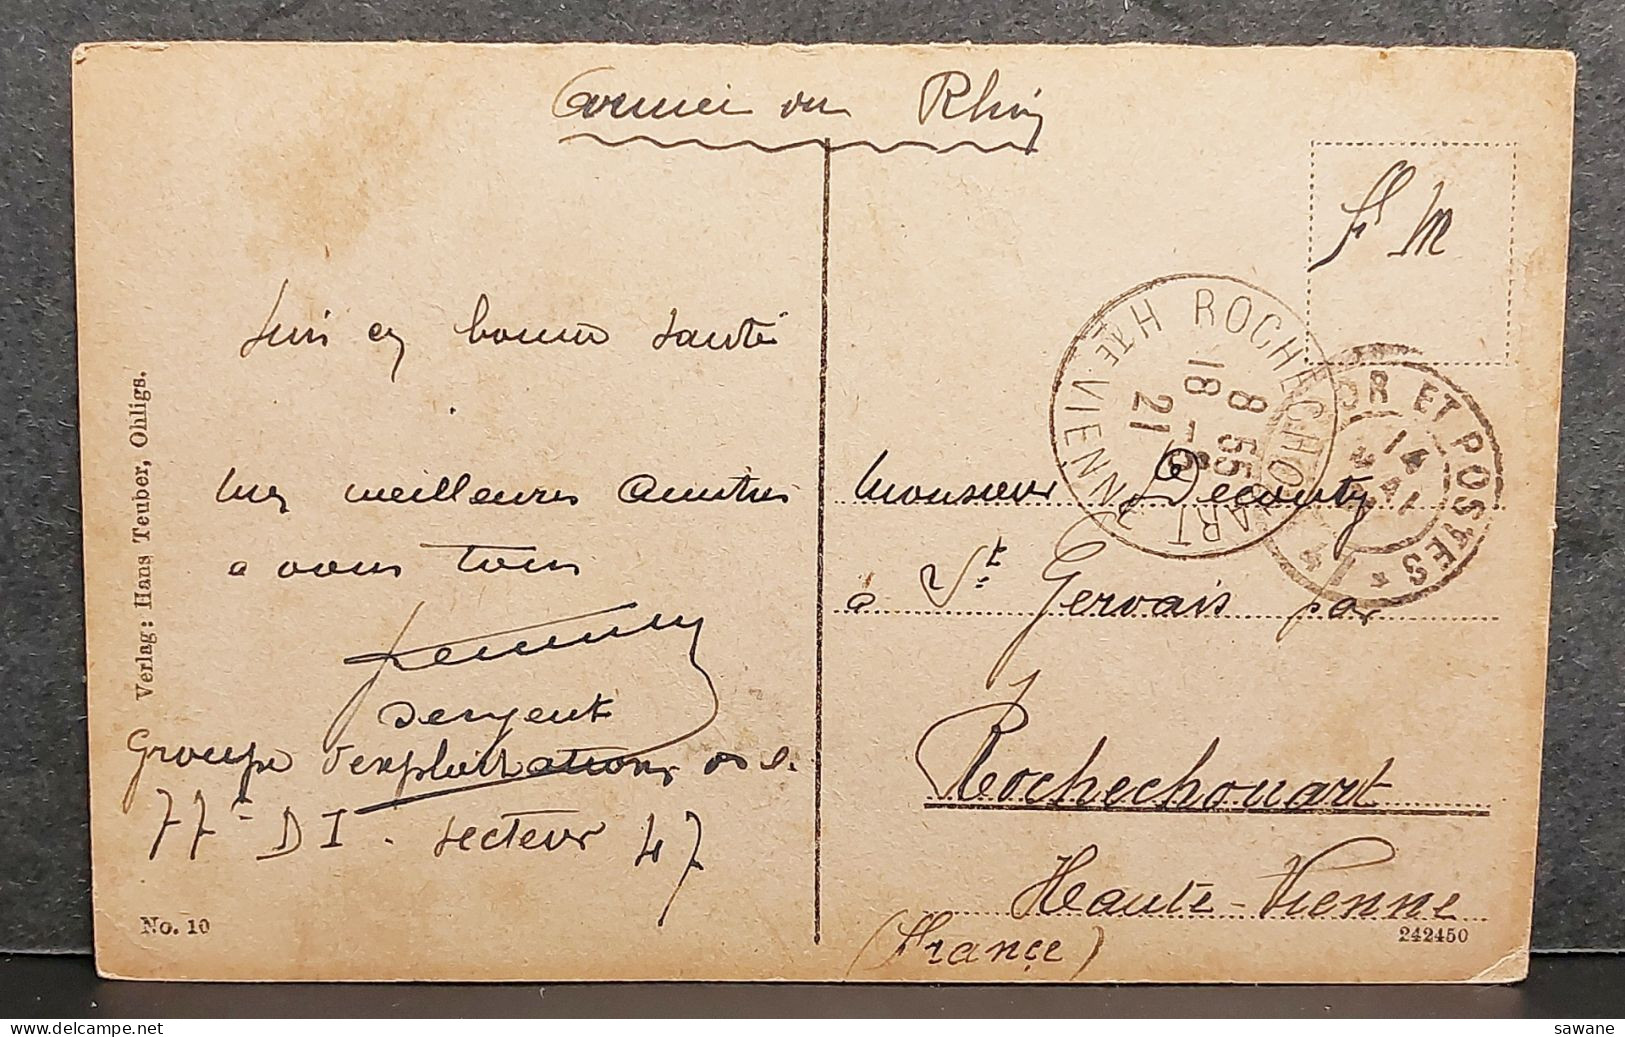 Armée du Rhin
F M
Suis en bonne santé
mes meilleures Amitiés
a vous tous
Sergent
Groupe d'exploitations de
77e D I - secteur 47
Verlag: Hans Teuber, Ohligs.
No. 10
ROCHECHOUART
HTE VIENNE
8 55
18 - 6
21
OR ET POSTES
14
Monsieur Decouty
a St Gervais par
Rochechouart
Haute-Vienne
(France)
242450
sawane